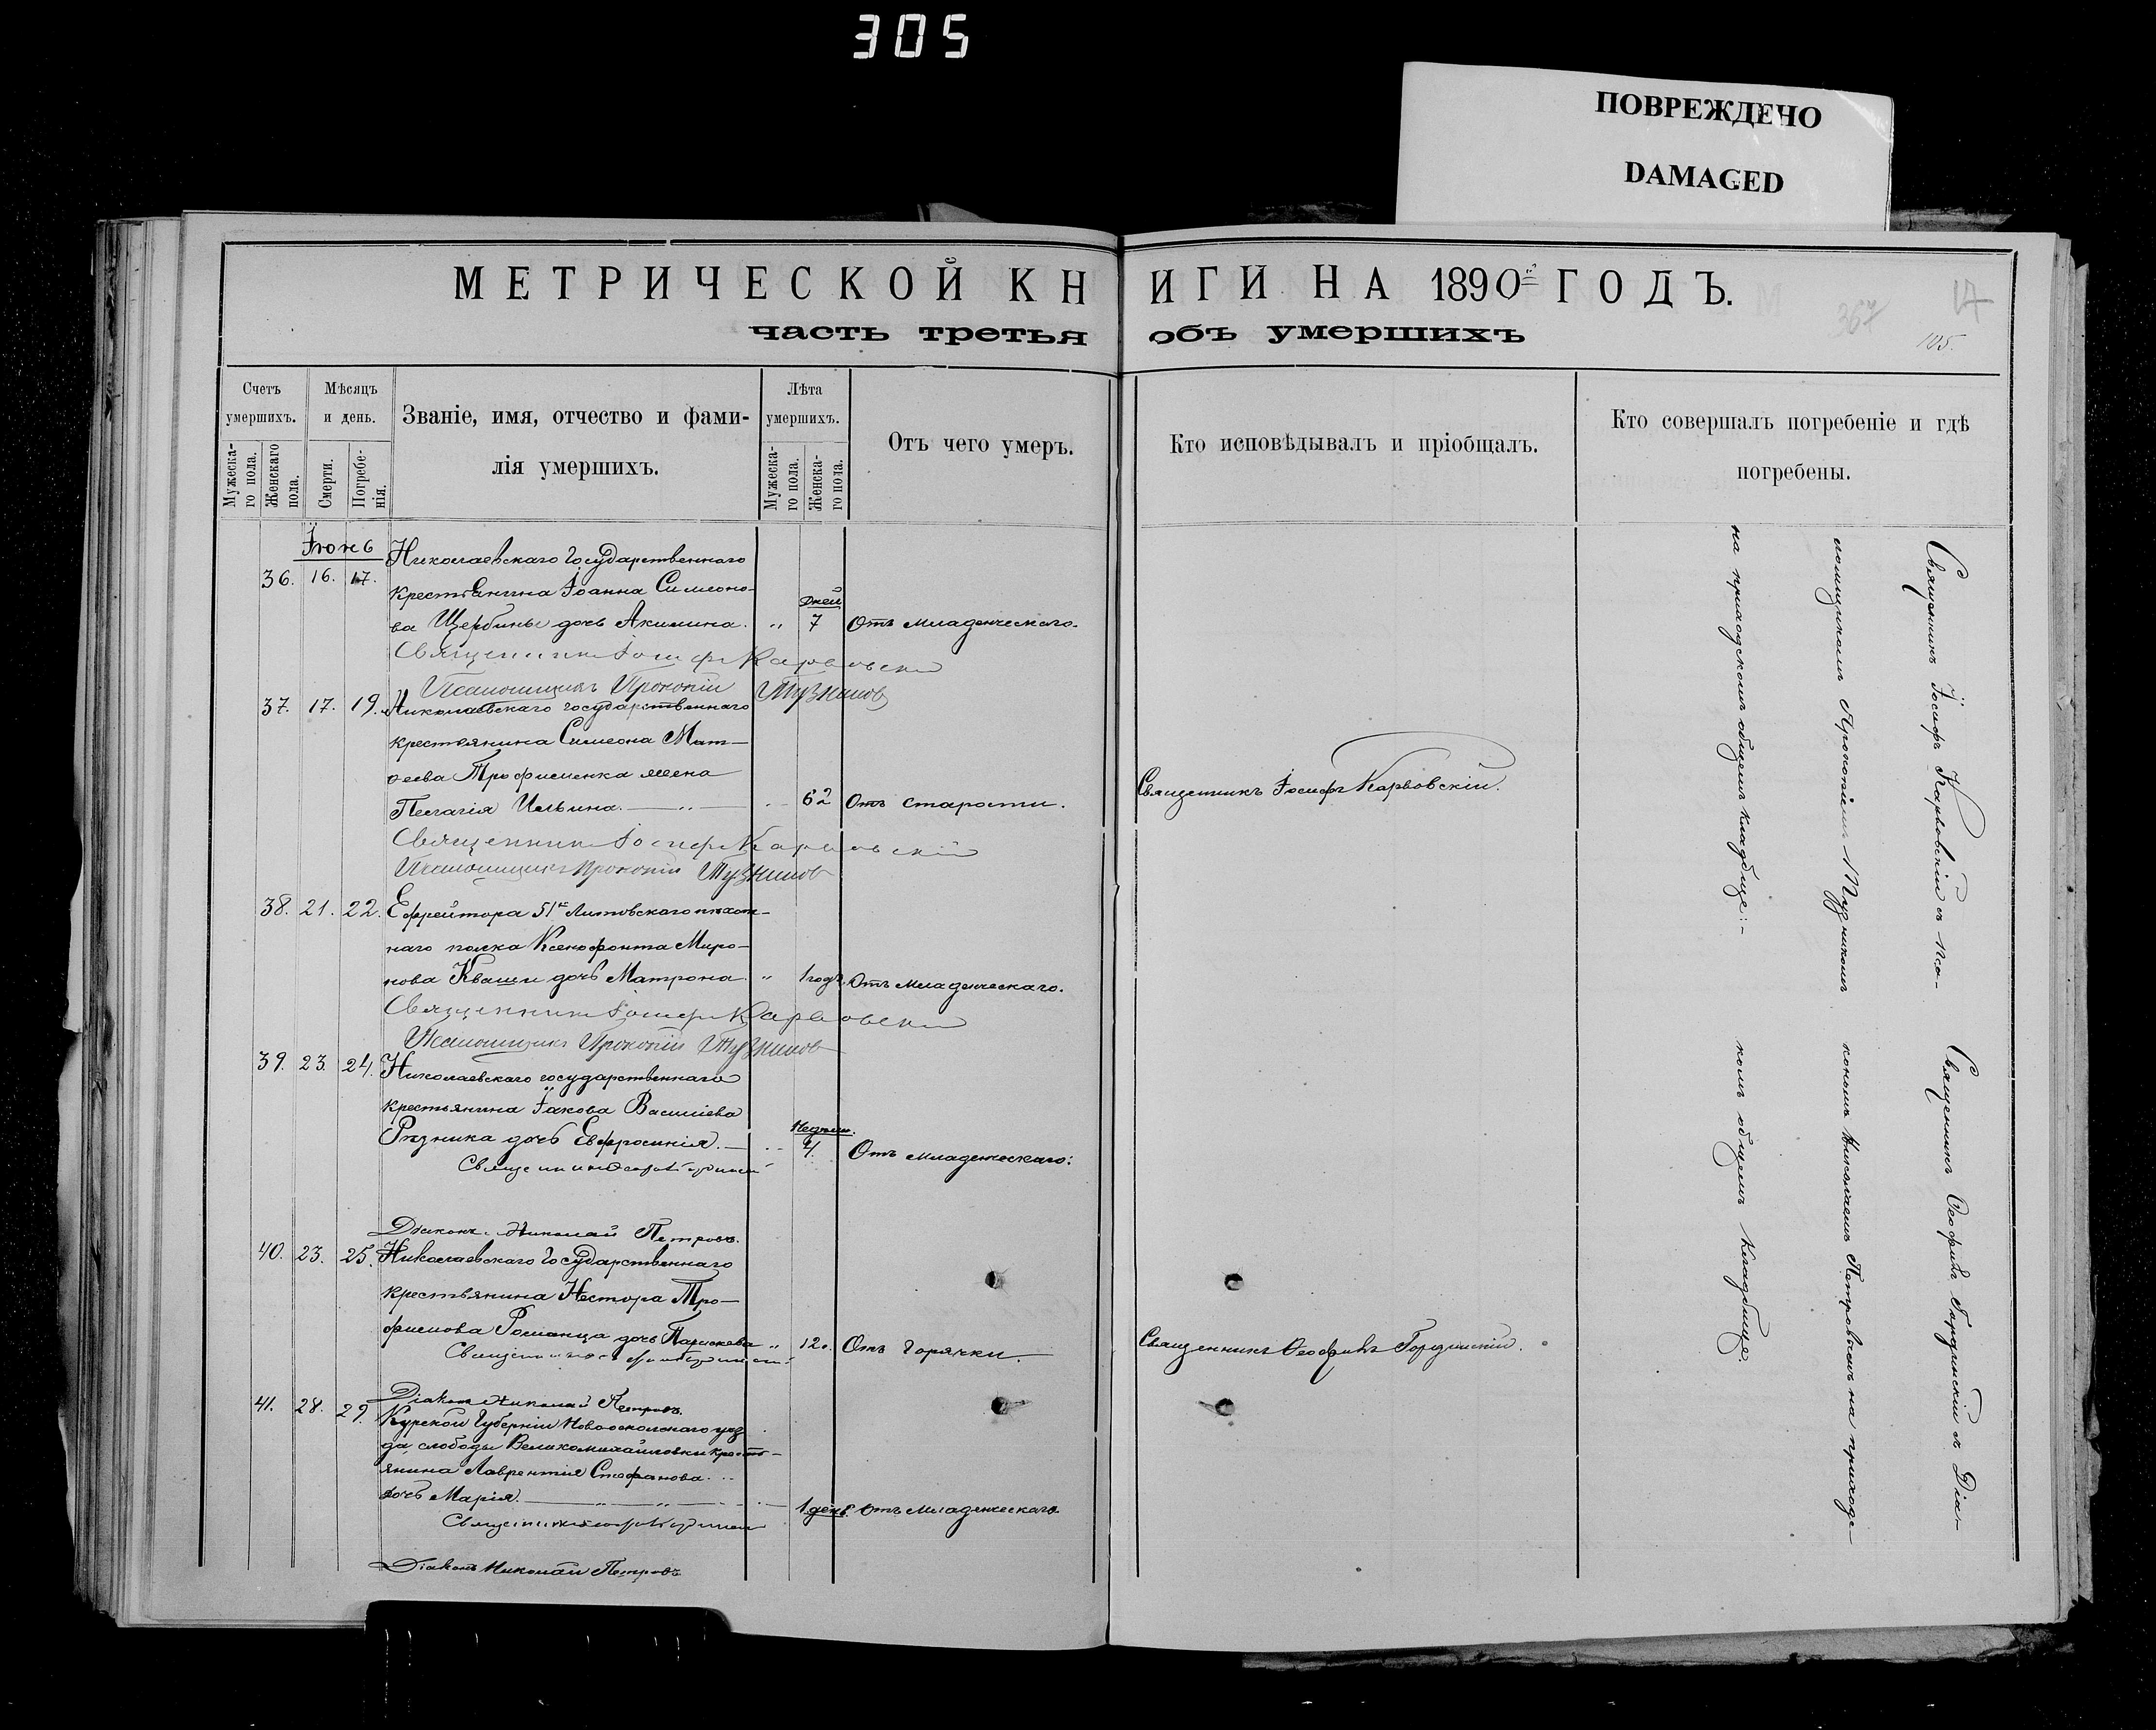 305
ПОВРЕЖДЕНО
DAMAGED
МЕТРИЧЕСКОЙ КНИГИ НА 1890й ГОДЪ.
часть третья объ умершихъ
367
17
105.
Счетъ умершихъ.
Мѣсяцъ и день.
Званіе, имя, отчество и фами-
лія умершихъ.
Лѣта умершихъ.
Отъ чего умеръ.
Кто исповѣдывалъ и пріобщалъ.
Кто совершалъ погребеніе и гдѣ
погребены.
Мужеска-
го пола.
Женскаго
пола.
Смерти.
Погребе-
нія.
Мужеска-
го пола.
Женска-
го пола.
Іюнь
36. 16. 17. Николаевскаго Государственнаго
крестьянина Іоанна Симеоно-
ва Щербины дочь Акилина. " Дней 7 Отъ младенческаго.
Священникъ Іосифъ Карвовскій
Псаломщикъ Прокопій Тузниковъ
37. 17. 19. Николаевскаго государственнаго
крестьянина Симеона Мат-
ѳеева Трофименка жена
Пелагія Ильина. 62 Отъ старости. Священникъ Іосифъ Карвовскій.
Священникъ Іосифъ Карвовскій
Псаломщикъ Прокопій Тузниковъ
38. 21. 22. Ефрейтора 51го Литовскаго пѣхот-
наго полка Ксенофонта Миро-
нова Кваши дочь Матрона. " 1 годъ. Отъ младенческаго.
Священникъ Іосифъ Карвовскій
Псаломщикъ Прокопій Тузниковъ
39. 23. 24. Николаевскаго государственнаго
крестьянина Іакова Василіева
Рѣзника дочь Евфросинія. Недѣли. 4. Отъ младенческаго:
Священникъ
Діаконъ Николай Петровъ.
40. 23. 25. Николаевскаго Государственнаго
крестьянина Нестора Тро-
фимова Романца дочь Параскева " 12. Отъ горячки. Священникъ Ѳеофилъ
Священникъ
Діаконъ Николай Петровъ.
41. 28. 29. Курской Губерніи Новооскольскаго уѣз
да слободы Великомихайловки кресть-
янина Лаврентія Стефанова
дочь Марія. 1 день. Отъ младенческаго.
Священникъ
Діаконъ Николай Петровъ
Священникъ Іосифъ Карвовскій съ пса-
ломщикомъ Прокопіемъ Тузниковымъ
на приходскомъ общемъ кладбище:-
Священникъ Ѳеофилъ съ Діа-
кономъ Николаемъ Петровымъ на приходс-
комъ общемъ кладбище.